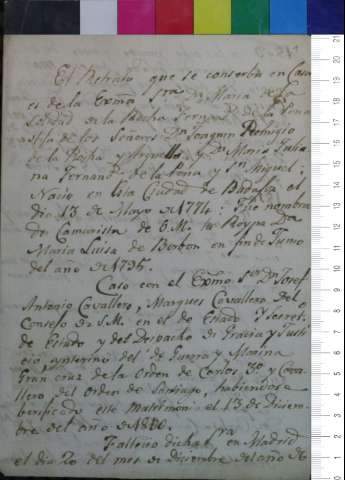 El Retrato que se conserba en Casa
es de la Exma Sra Da Maria de la
Soledad de la Rocha Fernandz de la Pena
hija de los Señores Dn Joaquin Remigio
de la Rocha y Arguello, y Da Maria Julia
na Fernandz de la Pena y Sn Miguel:
Nacio en esta Ciudad de Badajoz el
dia 13 de Mayo de 1774: Fue nombra
da Camarista de S.M. la Reyna Da
Maria Luisa de Borbon en fin de Junio
del año de 1795.
Caso con el Exmo Sr Dn Josef
Antonio Cavallero, Marques Cavallero del
Consejo de S.M. en el de Estado y Secreto
de Estado y del Despacho de Gracia y Just
icia ynterino del de Guerra y Marina
Gran cruz de la Orden de Carlos 3o y Cava
llero del Orden de Santiago, habiendose
berificado este Matrimonio el 13 de Diciem
bre del año de
Fallecio dicha Sra en Madrid
el dia 20 del mes de Diciembre del año de